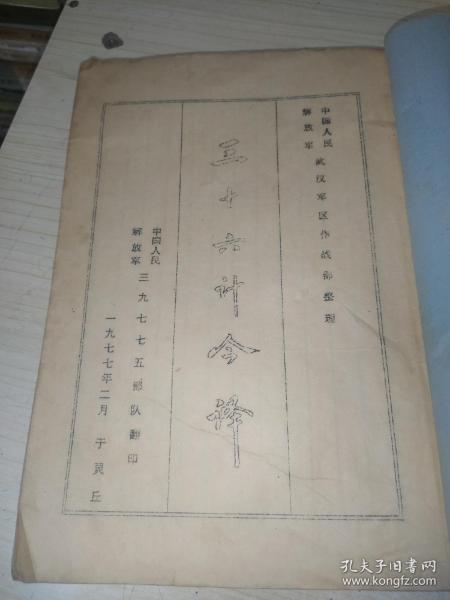 中国人民
解放军 武汉军区作战部整理
三十六计今释
中国人民
解放军 三九七七五部队翻印
一九七七年二月 于灵丘
孔夫子旧书网
www.kongfz.com